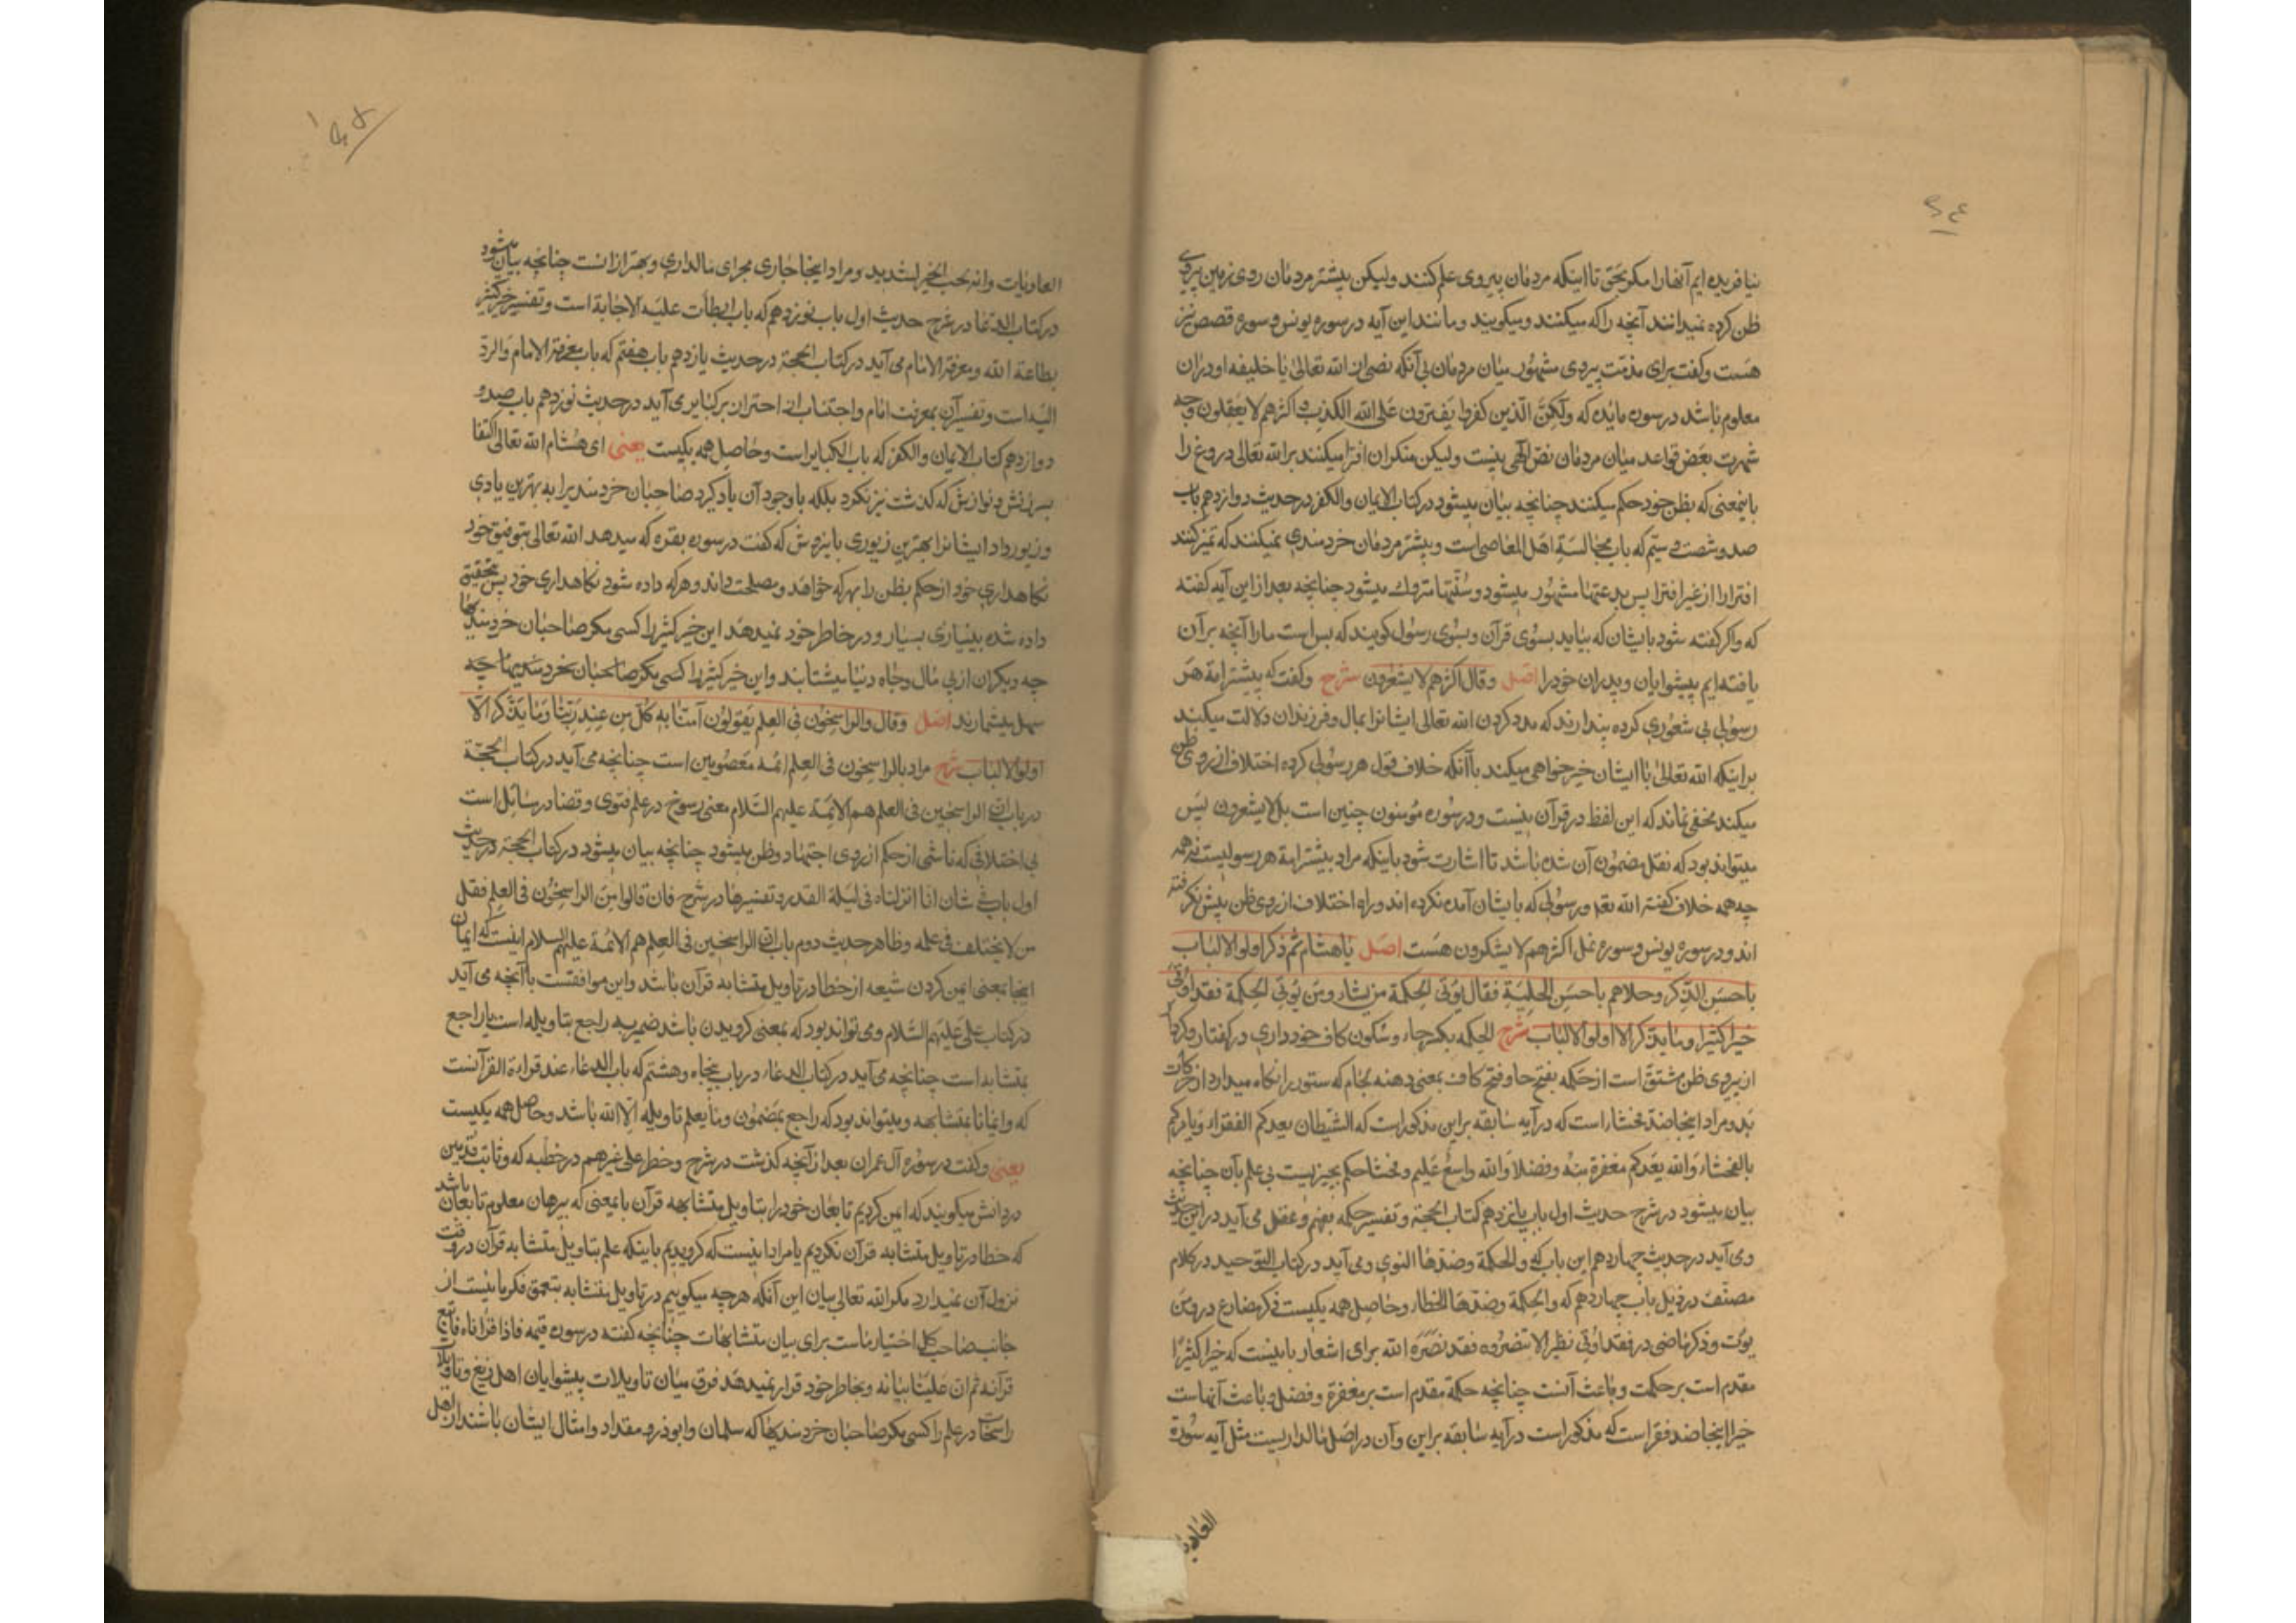 نیافریده ایم آنها را مکر بحق تا اینکه مردمان پیروی علم کنند ولیکن بیشتر مردمان روی زمین پیروی
ظن کرده نمیدانند آنچه را که میکنند و میکویند و مانند این آیه در سوره یونس و سوره قصص نیز
هست و کفت برای مذمت پیروی مشهور میان مردمان بی آنکه نصی از الله تعالی یا خلیفه او در ان
معلوم باشد در سوره مایده که ولکن الذین کفروا یفترون علی الله الکذب و اکثرهم لا یعقلون وجه
شهرت بعض قواعد میان مردمان نص الهی نیست ولیکن منکران افترا میکنند بر الله تعالی دروغ را
باینمعنی که بظن خود حکم میکنند چنانچه بیان میشود در کتاب الایمان والکفر در حدیث دوازدهم باب
صد و شصت و سیم که باب مجالسة اهل المعاصی است و بیشتر مردمان خردمندی نمیکنند که تمیز کنند
افترا را از غیر افترا پس بدعتها مشهور میشود و سنتها متروک میشود چنانچه بعد از این آیه کفته
که واکر کفته شود بایشان که بیاید بسوی قرآن و بسوی رسول کویند که بس است ما را آنچه بر آن
یافته ایم پیشوایان و پدران خود را اصل وقال اکثرهم لا یشعرون شرح و کفت که بیشتر امة هر
رسولی بی شعوری کرده پندارند که مدد کردن الله تعالی ایشانرا بمال و فرزندان دلالت میکند
بر اینکه الله تعالی با ایشان خیرخواهی میکند با آنکه خلاف قول هر رسولی کرده اختلاف از روی ظن
میکند مخفی نماند که این لفظ در قرآن نیست و در سوره مؤمنون چنین است بل لا یشعرون پس
میتواند بود که نقل مضمون آن شده باشد تا اشارت شود باینکه مراد بیشتر امة هر رسولیست نه همه
چه همه خلاف کفته الله تعالی و رسولی که بایشان آمده نکرده اند و راه اختلاف از روی ظن پیش نکرفته
اند و در سوره یونس و سوره نمل اکثرهم لا یشکرون هست اصل یا هشام ثم ذکر اولو الالباب
باحسن الذکر وحلاهم باحسن الحلیة فقال یؤتی الحکمة من یشاء ومن یؤتی الحکمة فقد اوتی
خیرا کثیرا وما یذکر الا اولو الالباب شرح الحکمه بکسر حاء و سکون کاف خودداری در کفتار و کردار
از پیروی ظن مشتق است از حکمه بفتح حا و فتح کاف بمعنی دهنه لجام که ستور را نکاه میدارد از حرکات
بد و مراد اینجا ضد فحشاء است که در آیه سابقه بر این مذکور است که الشیطان یعدکم الفقر و یامرکم
بالفحشاء والله یعدکم مغفرة منه وفضلا والله واسع علیم و فحشا حکم بچیزیست بی علم بآن چنانچه
بیان میشود در شرح حدیث اول باب پانزدهم کتاب الحجة و تفسیر حکمه بفهم و عقل می آید در این حدیث
و می آید در حدیث چهاردهم این باب که والحکمة وضدها الهوی و می آید در کتاب التوحید در کلام
مصنف در ذیل باب چهاردهم که والحکمة وضدها الخطاء و حاصل همه یکیست ذکر مضارع در ومن
یوت و ذکر ماضی در فقد اوتی نظیر الا تنصروه فقد نصره الله برای اشعار باینست که خیرا کثیرا
مقدم است بر حکمت و باعث آنست چنانچه حکمة مقدم است بر مغفرة و فضل و باعث آنهاست
خیر اینجا ضد فقر است که مذکور است در آیه سابقه بر این و آن در اصل مالداریست مثل آیه سورة
العادیات
العادیات وانه لحب الخیر لشدید و مراد اینجا جاری مجرای مالداری و بهتر از انست چنانچه بیان میشود
در کتاب الدعا در شرح حدیث اول باب نوزدهم که باب ابطأت علیه الاجابة است و تفسیر خیر کثیر
بطاعة الله و معرفة الامام می آید در کتاب الحجة در حدیث یازدهم باب هفتم که باب معرفة الامام والرد
الیه است و تفسیر آن بمعرفت امام و اجتناب از کبایر می آید در حدیث نوزدهم باب صد و
دوازدهم کتاب الایمان والکفر که باب الکبایر است و حاصل همه یکیست یعنی ای هشام الله تعالی اکتفا
بسرزنش و نوازش که کذشت نیز نکرد بلکه با وجود آن یاد کرد صاحبان خردمندیرا به بهترین یادی
و زیور داد ایشانرا بهترین زیوری باینروش که کفت در سوره بقره که میدهد الله تعالی بتوفیق خود
نکاهداری خود از حکم بظن را بهر که خواهد و مصلحت داند و هر که داده شود نکاهداری خود پس بتحقیق
داده شده بینیازی بسیار و در خاطر خود نمیدهد این خیر کثیر را کسی مکر صاحبان خردمندیها
چه دیکران از پی مال و جاه دنیا میشتابند و این خیر کثیر را کسی مکر صاحبان خردمندیها چه
سهل میشمارند اصل وقال والراسخون فی العلم یقولون آمنا به کل من عند ربنا وما یذکر الا
اولوا الالباب شرح مراد بالراسخون فی العلم ائمه معصومین است چنانچه می آید در کتاب الحجة
در باب ان الراسخین فی العلم هم الائمة علیهم السلام معنی رسوخ در علم فتوی و قضا در مسائل است
بی اختلافی که ناشی از حکم از روی اجتهاد و ظن میشود چنانچه بیان میشود در کتاب الحجة در حدیث
اول باب فی شان انا انزلناه فی لیلة القدر و تفسیرها در شرح فان قالوا من الراسخون فی العلم فقل
من لا یختلف فی علمه و ظاهر حدیث دوم باب ان الراسخین فی العلم هم الائمة علیهم السلام اینست که ایمان
اینجا بمعنی امن کردن شیعه از خطا در تاویل متشابه قرآن باشد و این موافقست با آنچه می آید
در کتاب علی علیهم السلام و می تواند بود که بمعنی کرویدن باشد ضمیر به راجع بتاویله است یا راجع
بمتشابه است چنانچه می آید در کتاب الدعاء در باب پنجاه و هشتم که باب الدعاء عند قراءة القرآنست
که وایمانا بمتشابهه و میتواند بود که راجع بمضمون وما یعلم تاویله الا الله باشد و حاصل همه یکیست
یعنی و کفت در سوره آل عمران بعد از آنچه کذشت در شرح وخطر علی غیرهم در خطبه که و ثابت قدمین
در دانش میکویند که امن کردیم تابعان خود را بتاویل متشابهه قرآن باینمعنی که بیرهان معلوم تابعان باشد
که خطا در تاویل متشابه قرآن نکردیم یا مراد اینست که کرویدیم باینکه علم بتاویل متشابه قرآن در وقت
نزول آن نمیدارد مکر الله تعالی بیان این آنکه هر چه میکوییم در تاویل متشابه بتعمق فکر ما نیست از
جانب صاحب کل اختیار ماست برای بیان متشابهات چنانچه کفته در سوره قیمه فاذا قراناه فاتبع
قرآنه ثم ان علینا بیانه و بخاطر خود قرار نمیدهد فرق میان تاویلات پیشوایان اهل زیغ و تاویلات
راسخان در علم را کسی مکر صاحبان خردمندیها که سلمان و ابوذر و مقداد و امثال ایشان باشند از اهل